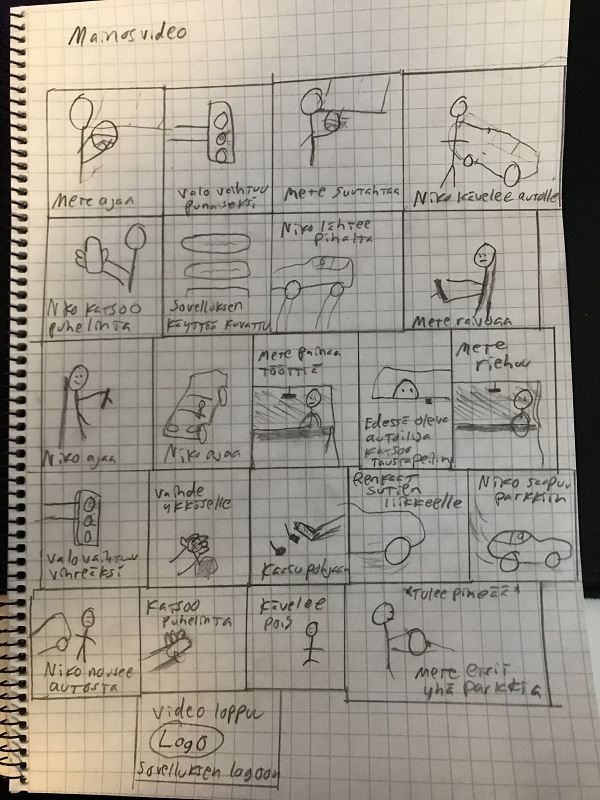 Mainosvideo
Mete ajaa
Valo vaihtuu
punaseksi
Mete suutahtaa
Niko kävelee autolle
Niko katsoo
puhelinta
Sovelluksen
käyttöä kuvattu
Niko lähtee
pihalta
Mete raivoaa
Niko ajaa
Niko ajaa
Mete painaa
tööttiä
Edessä oleva
autoilija
katsoo
taustapeiliin
Mete
riehuu
Valo vaihtuu
vihreäksi
Vaihde
ykköselle
Kaasu pohjaan
Renkaat
sutien
liikkeelle
Niko saapuu
parkkiin
Niko nousee
autosta
Katsoo
puhelinta
Kävelee
pois
*Tulee pimeää*
Mete etsii
yhä parkkia
Video loppuu
Logo
Sovelluksen logoon